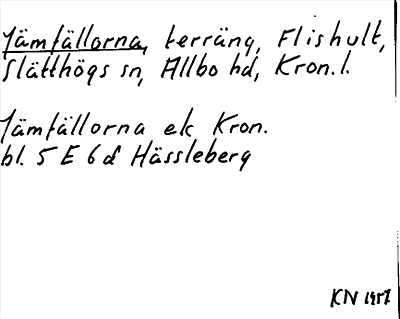 Jämfällorna, terräng, Flishult,
Slätthögs sn, Allbo hd, Kron.l.
Jämfällorna ek Kron.
bl. 5 E 6 d Hässleberg
KN 1957